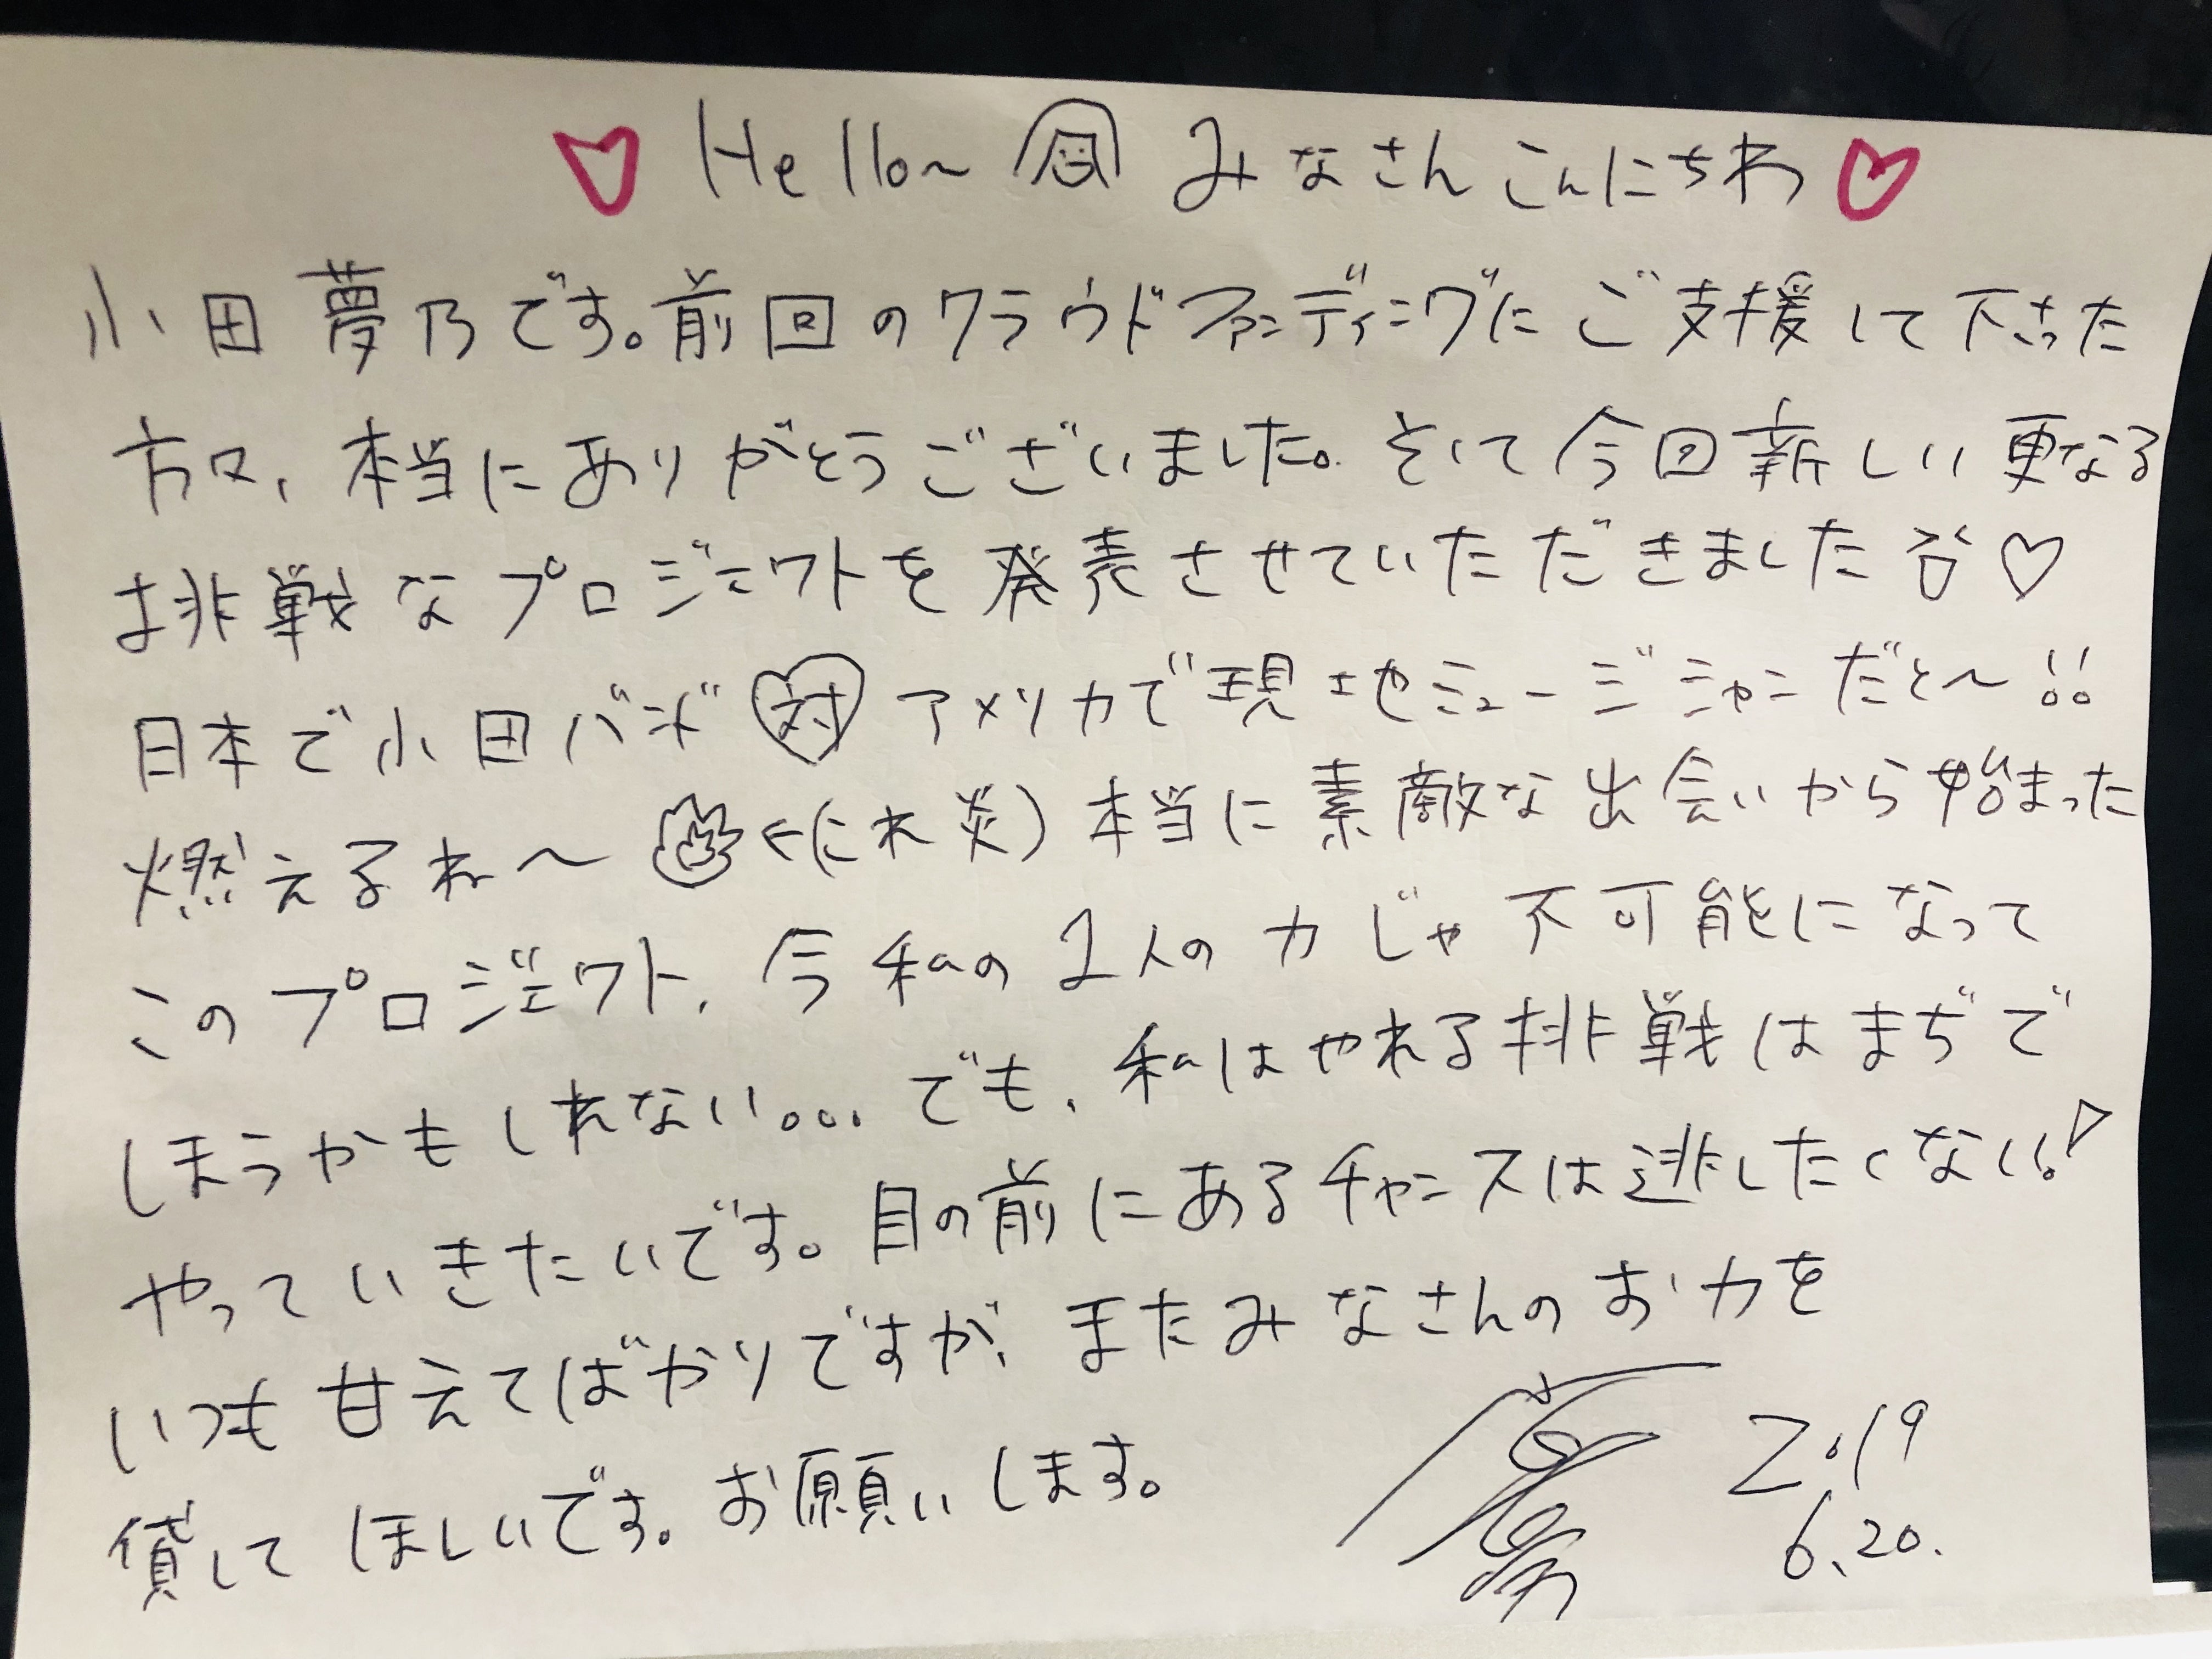 Hello〜 みなさんこんにちわ
小田夢乃です。前回のクラウドファンディングにご支援して下さった
方々、本当にありがとうございました。そして今回新しい更なる
挑戦なプロジェクトを発売させていただきました
日本で小田バンド 対 アメリカで現地ミュージシャンだと〜!!
燃えるね〜 ←(これ炎) 本当に素敵な出会いから始まった
このプロジェクト、今私の2人の力じゃ不可能になって
しまうかもしれない... でも、私はやれる挑戦はまでで
やっていきたいです。目の前にあるチャンスは逃したくない!
いつも甘えてばかりですが、またみなさんのお力を
貸してほしいです。お願いします。
2019
6.20.